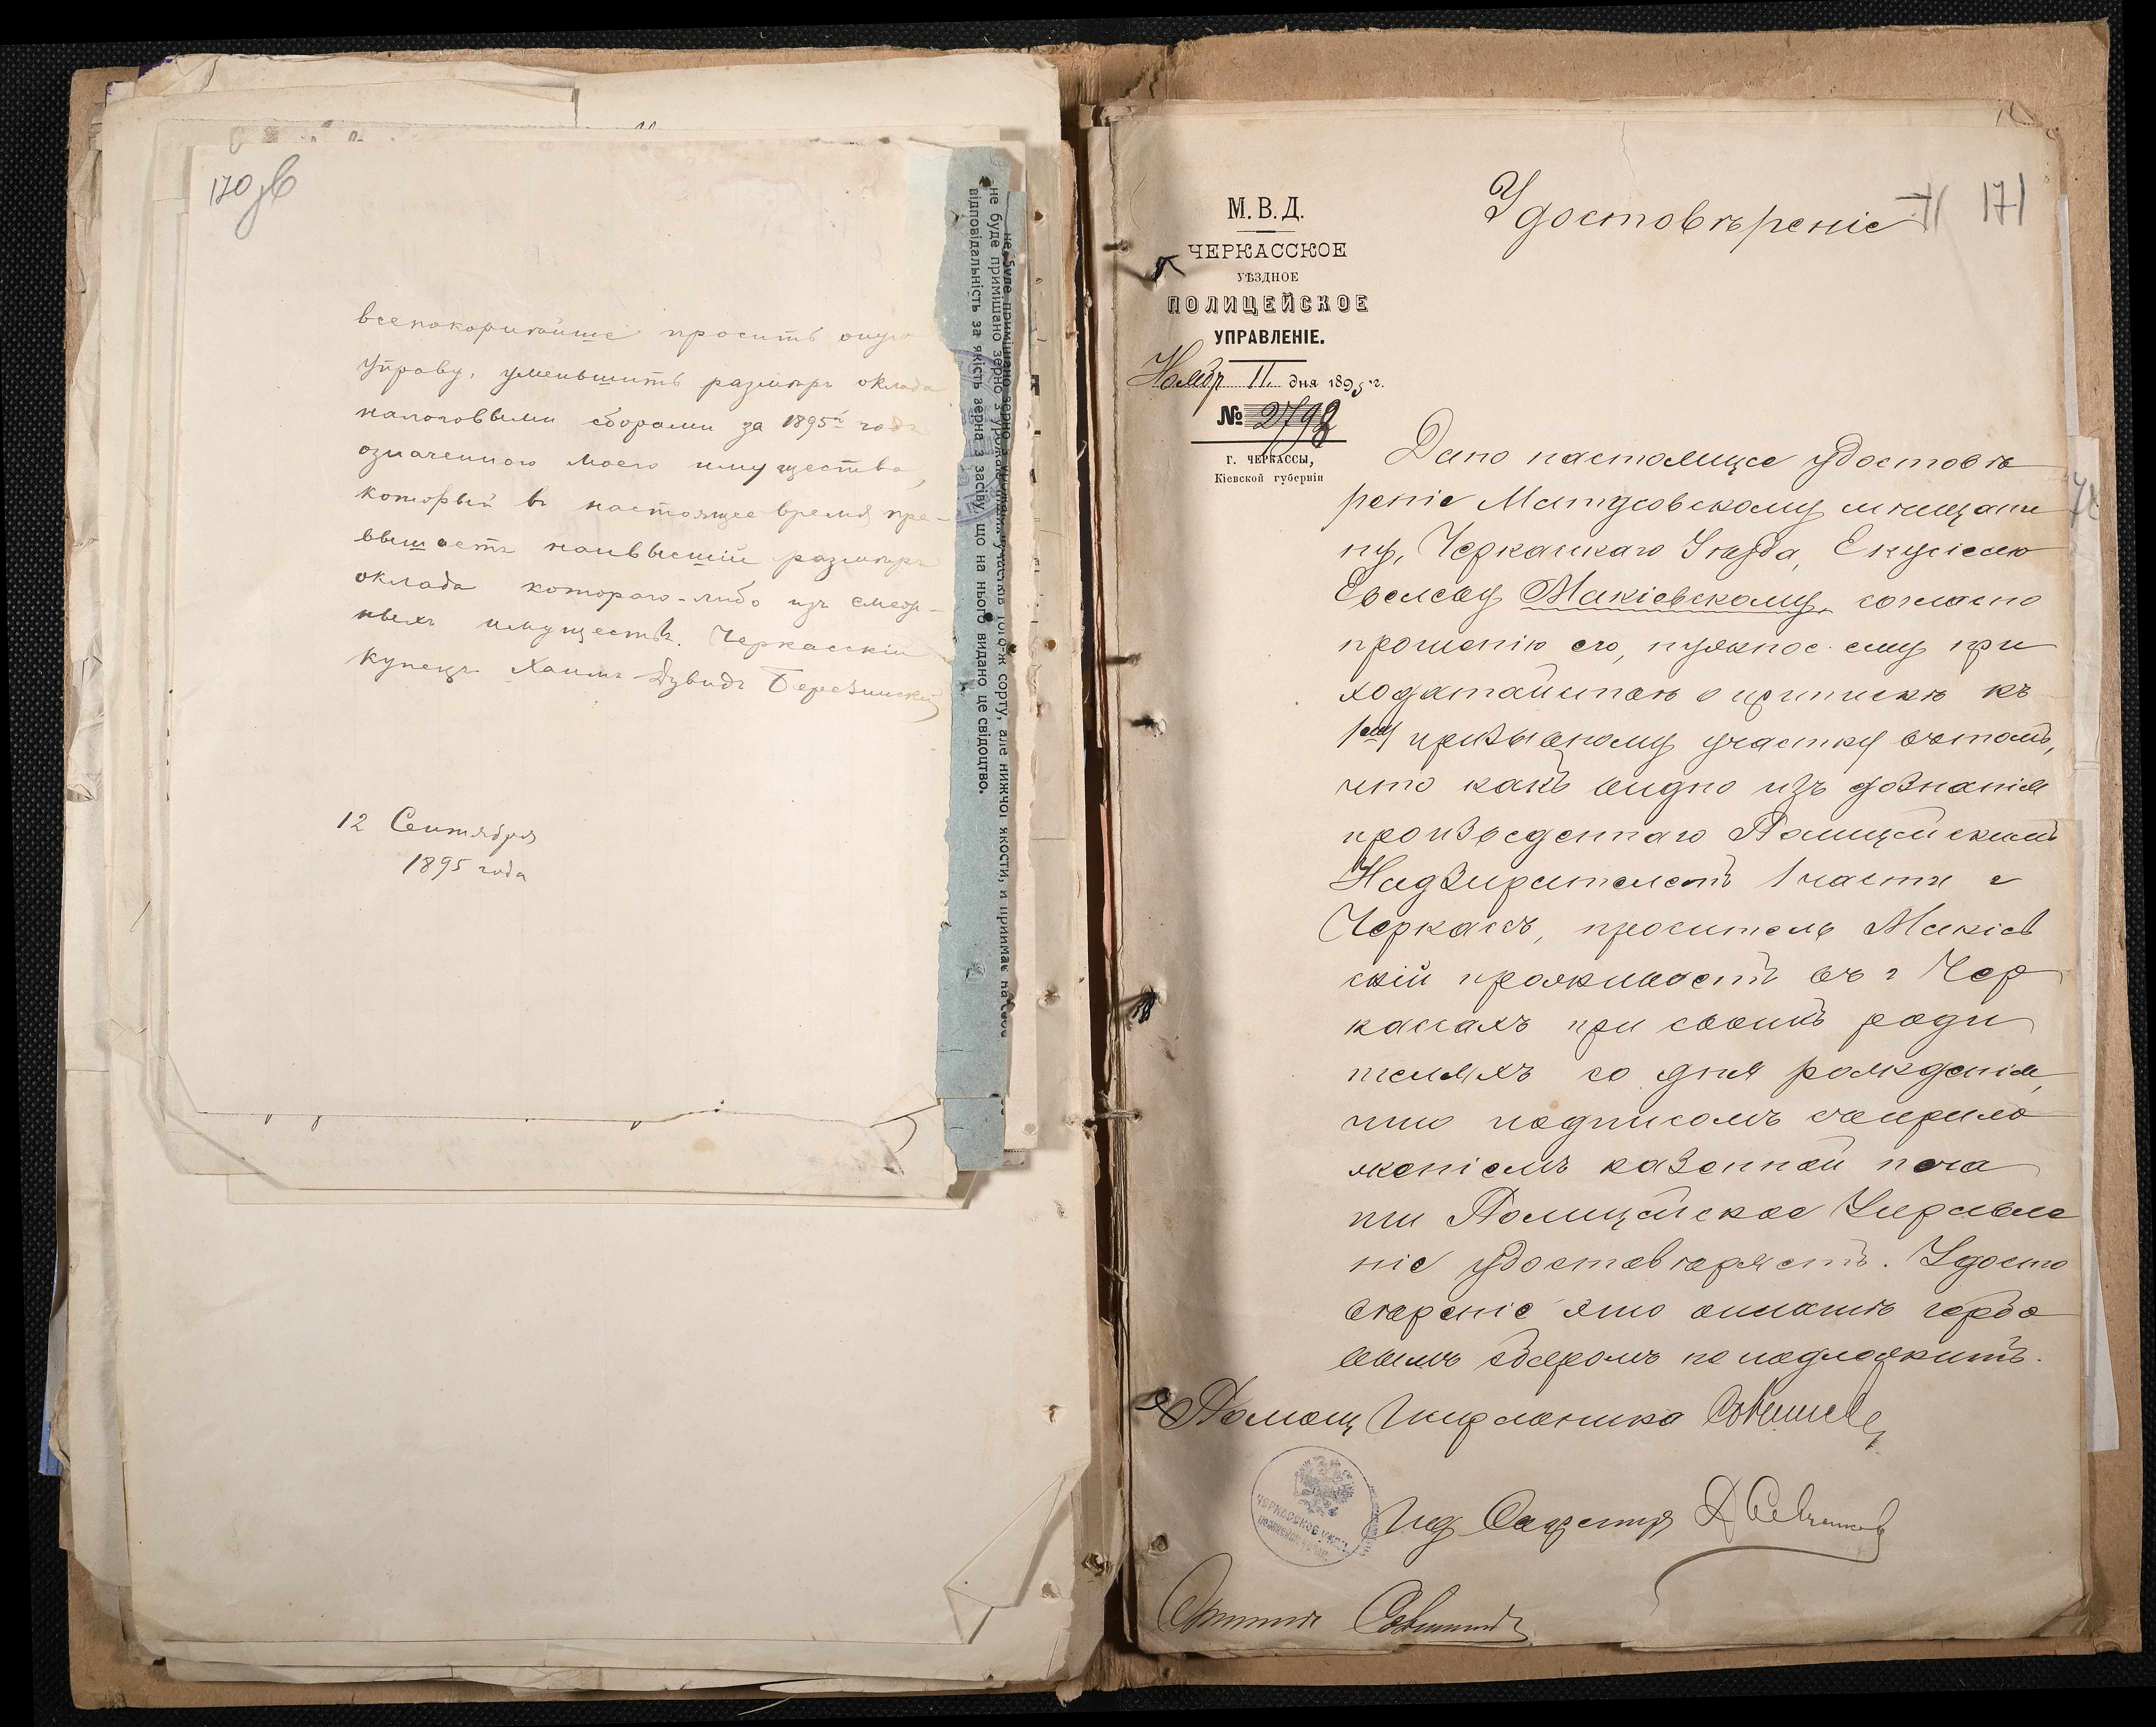 170 зв
всепокорнѣйше просить оную
Управу, уменьшить размѣръ оклада
налоговыми сборами за 1895й годъ
означеннаго моего имущества,
который въ настоящее время пре-
вышаетъ наивысшій размѣръ
оклада котораго-либо изъ смеж-
ныхъ имуществъ. Черкасскій
купецъ Хаимъ Дувидъ Березинскій
12 Сентября
1895 года
не буде примішано зерно з урожаю участків того-ж сорту, але нижчої якості, и приймає на себе
відповідальність за якість зерна з засіву, що на нього видано це свідоцтво.
171
Удостовѣреніе
М.В.Д.
ЧЕРКАССКОЕ
УѢЗДНОЕ
ПОЛИЦЕЙСКОЕ
УПРАВЛЕНІЕ.
Ноябр 11 дня 1895 г.
№ 2792
г. ЧЕРКАССЫ,
Кіевской губерніи
Дано настоящее удостовѣ
реніе Матусовскому мѣщани
ну, Черкасскаго Уѣзда,
Макіевскому, согласно
прошенію его, нужное ему при
ходатайствѣ о припискѣ къ
1му призывному участку въ томъ,
что какъ видно изъ дознанія
произведеннаго Полицейскимъ
Надзирателемъ 1 части г
Черкассъ, проситель Макіев
скій проживаетъ въ г Чер
кассахъ при своихъ роди
теляхъ со дня рожденія,
что подписомъ съ прило
женіемъ казенной печа
ти Полицейское Управле
ніе удостовѣряетъ. Удосто
вѣреніе это оплатѣ гербо
вымъ сборомъ не подлежитъ.
Помощ Исправника
ЧЕРКАССКОЕ УѢЗД.
Секретаря